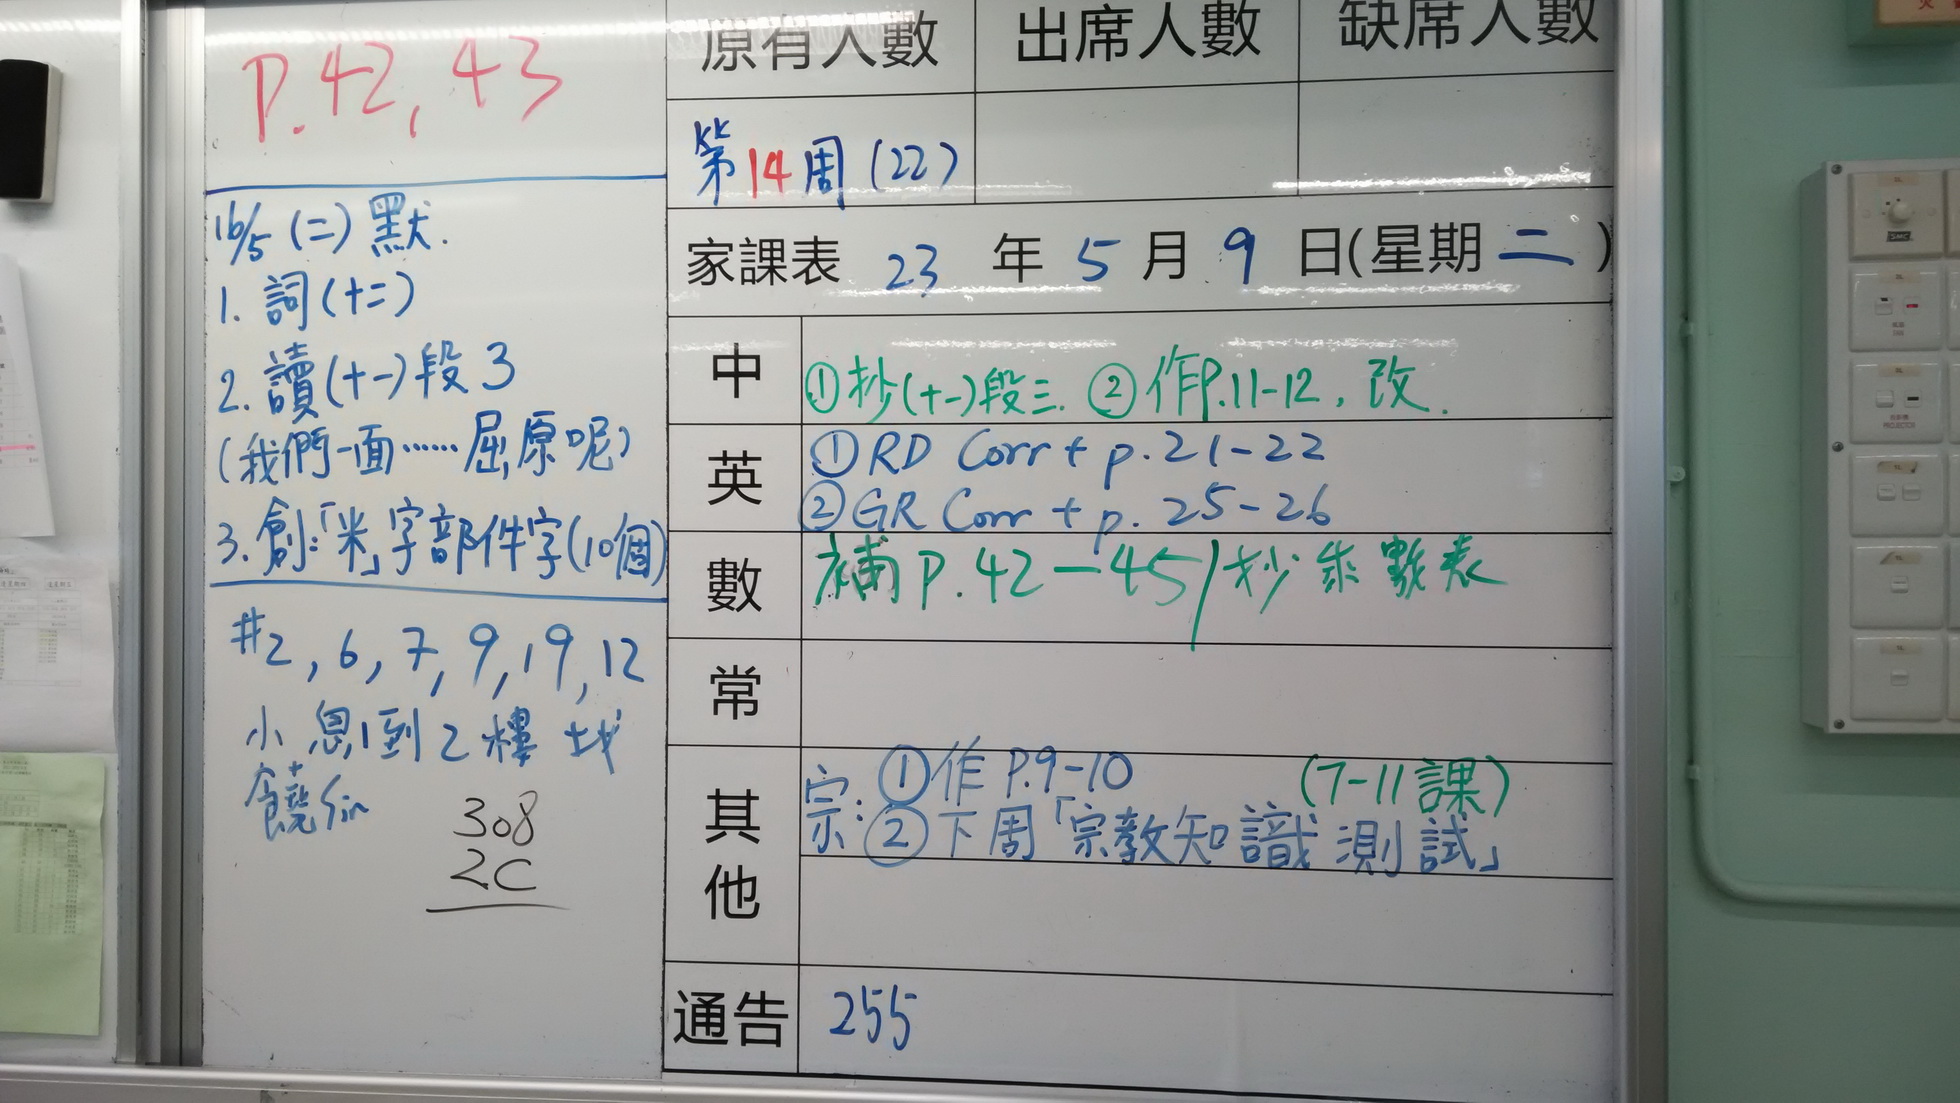 P.42, 43
16/5 (二) 默.
1. 詞(十二)
2. 讀(十一)段3
(我們一面……屈原呢)
3. 創:「米」字部件字(10個)
#2, 6, 7, 9, 19, 12
小息到2樓找
饒Sin
308
2C
原有人數 出席人數 缺席人數
第14周(22)
家課表 23 年 5 月 9 日(星期 二 )
中 ①抄(十一)段三. ②作P.11-12, 改.
英 ①RD Corr + p.21-22
②GR Corr + p. 25-26
數 補P.42-45/抄乘數表
常
其他 宗: ①作P.9-10 (7-11課)
②下周「宗教知識測試」
通告 255